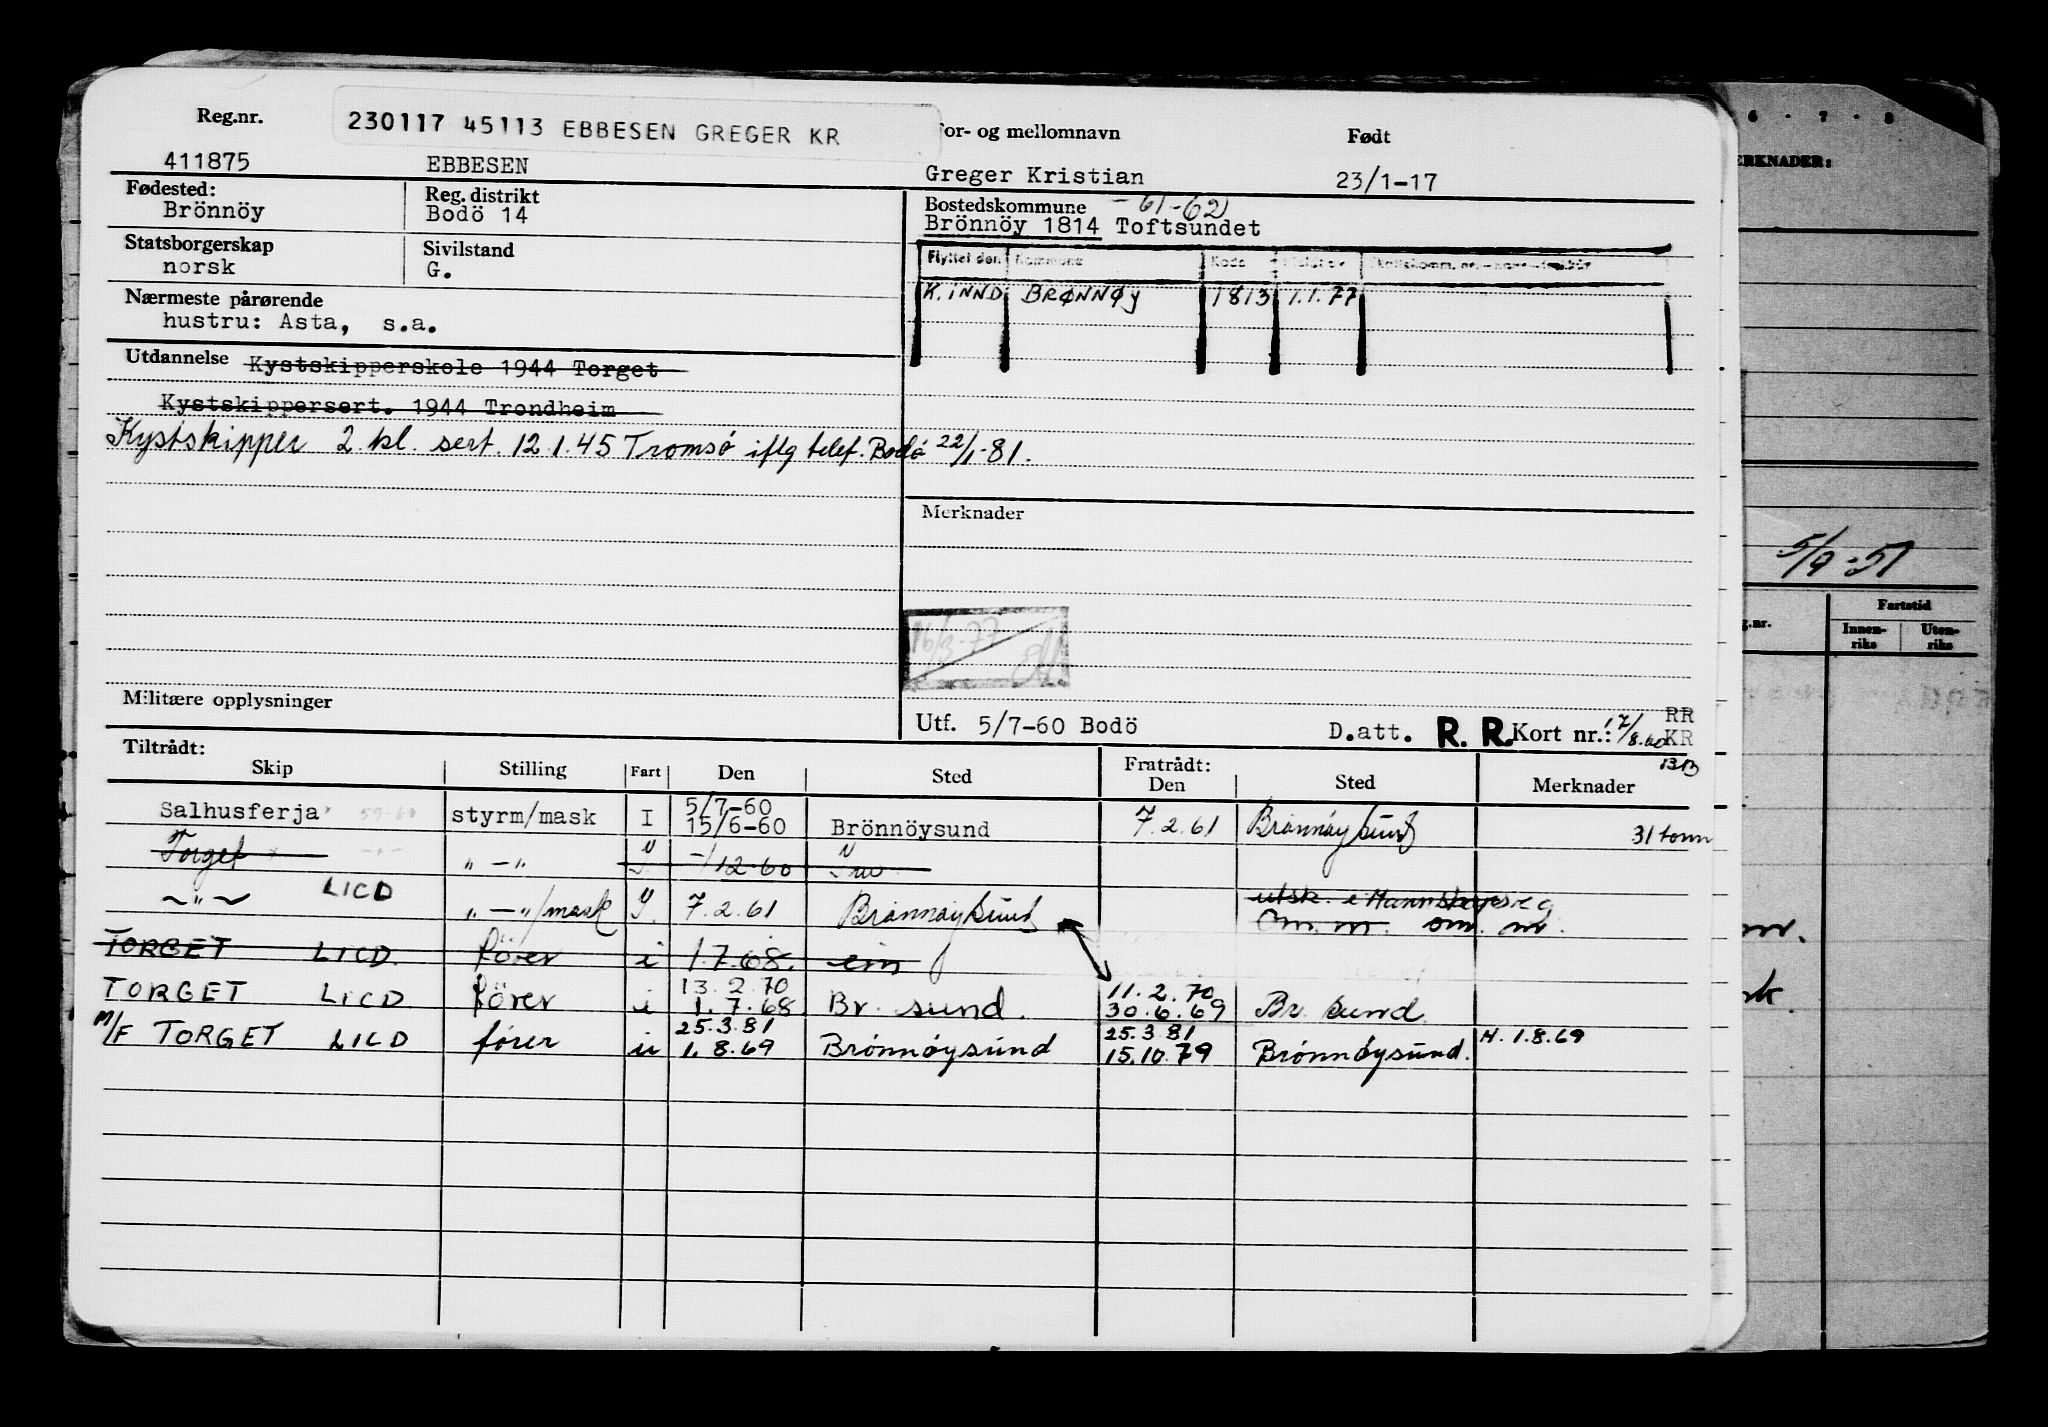 Reg.nr. 230117 45113 EBBESEN GREGER KR For- og mellomnavn Født
411875 EBBESEN Greger Kristian 23/1-17
Fødested: Reg. distrikt Bostedskommune -61-62
Brönnöy Bodö 14 Brönnöy 1814 Toftsundet
Statsborgerskap Sivilstand
norsk G.
Flyttet den Kommune Kode
K. INND BRØNNØY 1813 1.1.77
Nærmeste pårørende
hustru: Asta, s.a.
Utdannelse Kystskipperskole 1944 Torget
Kystskippersert. 1944 Trondheim
Kystskipper 2. kl. sert. 12.1.45 Tromsø iflg telef. Bodø 22/1-81.
Merknader
16/3-77
Militære opplysninger
Utf. 5/7-60 Bodö D.att. R. R. Kort nr.: 17/8.60 RR KR
Tiltrådt: Fratrådt:
Skip Stilling Fart Den Sted Den Sted Merknader
5/7-60
Salhusferja styrm/mask I 15/6-60 Brönnöysund 7.2.61 Brönnöysund 31 tonn
Torget " - " -/12-60
- " - LICD " - "/mask 7.2.61 Brönnöysund utsk. i Mannskapsreg
Om. m. om. m.
TORGET LICD. förer i 1.7.68.
13.2.70 11.2.70
TORGET LICD förer i 1.7.68 Br. sund. 30.6.69 Br. sund.
25.3.81 25.3.81
M/F TORGET LICD fører u 1.8.69 Brønnøysund 15.10.79 Brønnøysund. H. 1.8.69
6 - 7 - 8
MERKNADER:
5/9-51
Fartstid
Innen-riks Uten-riks